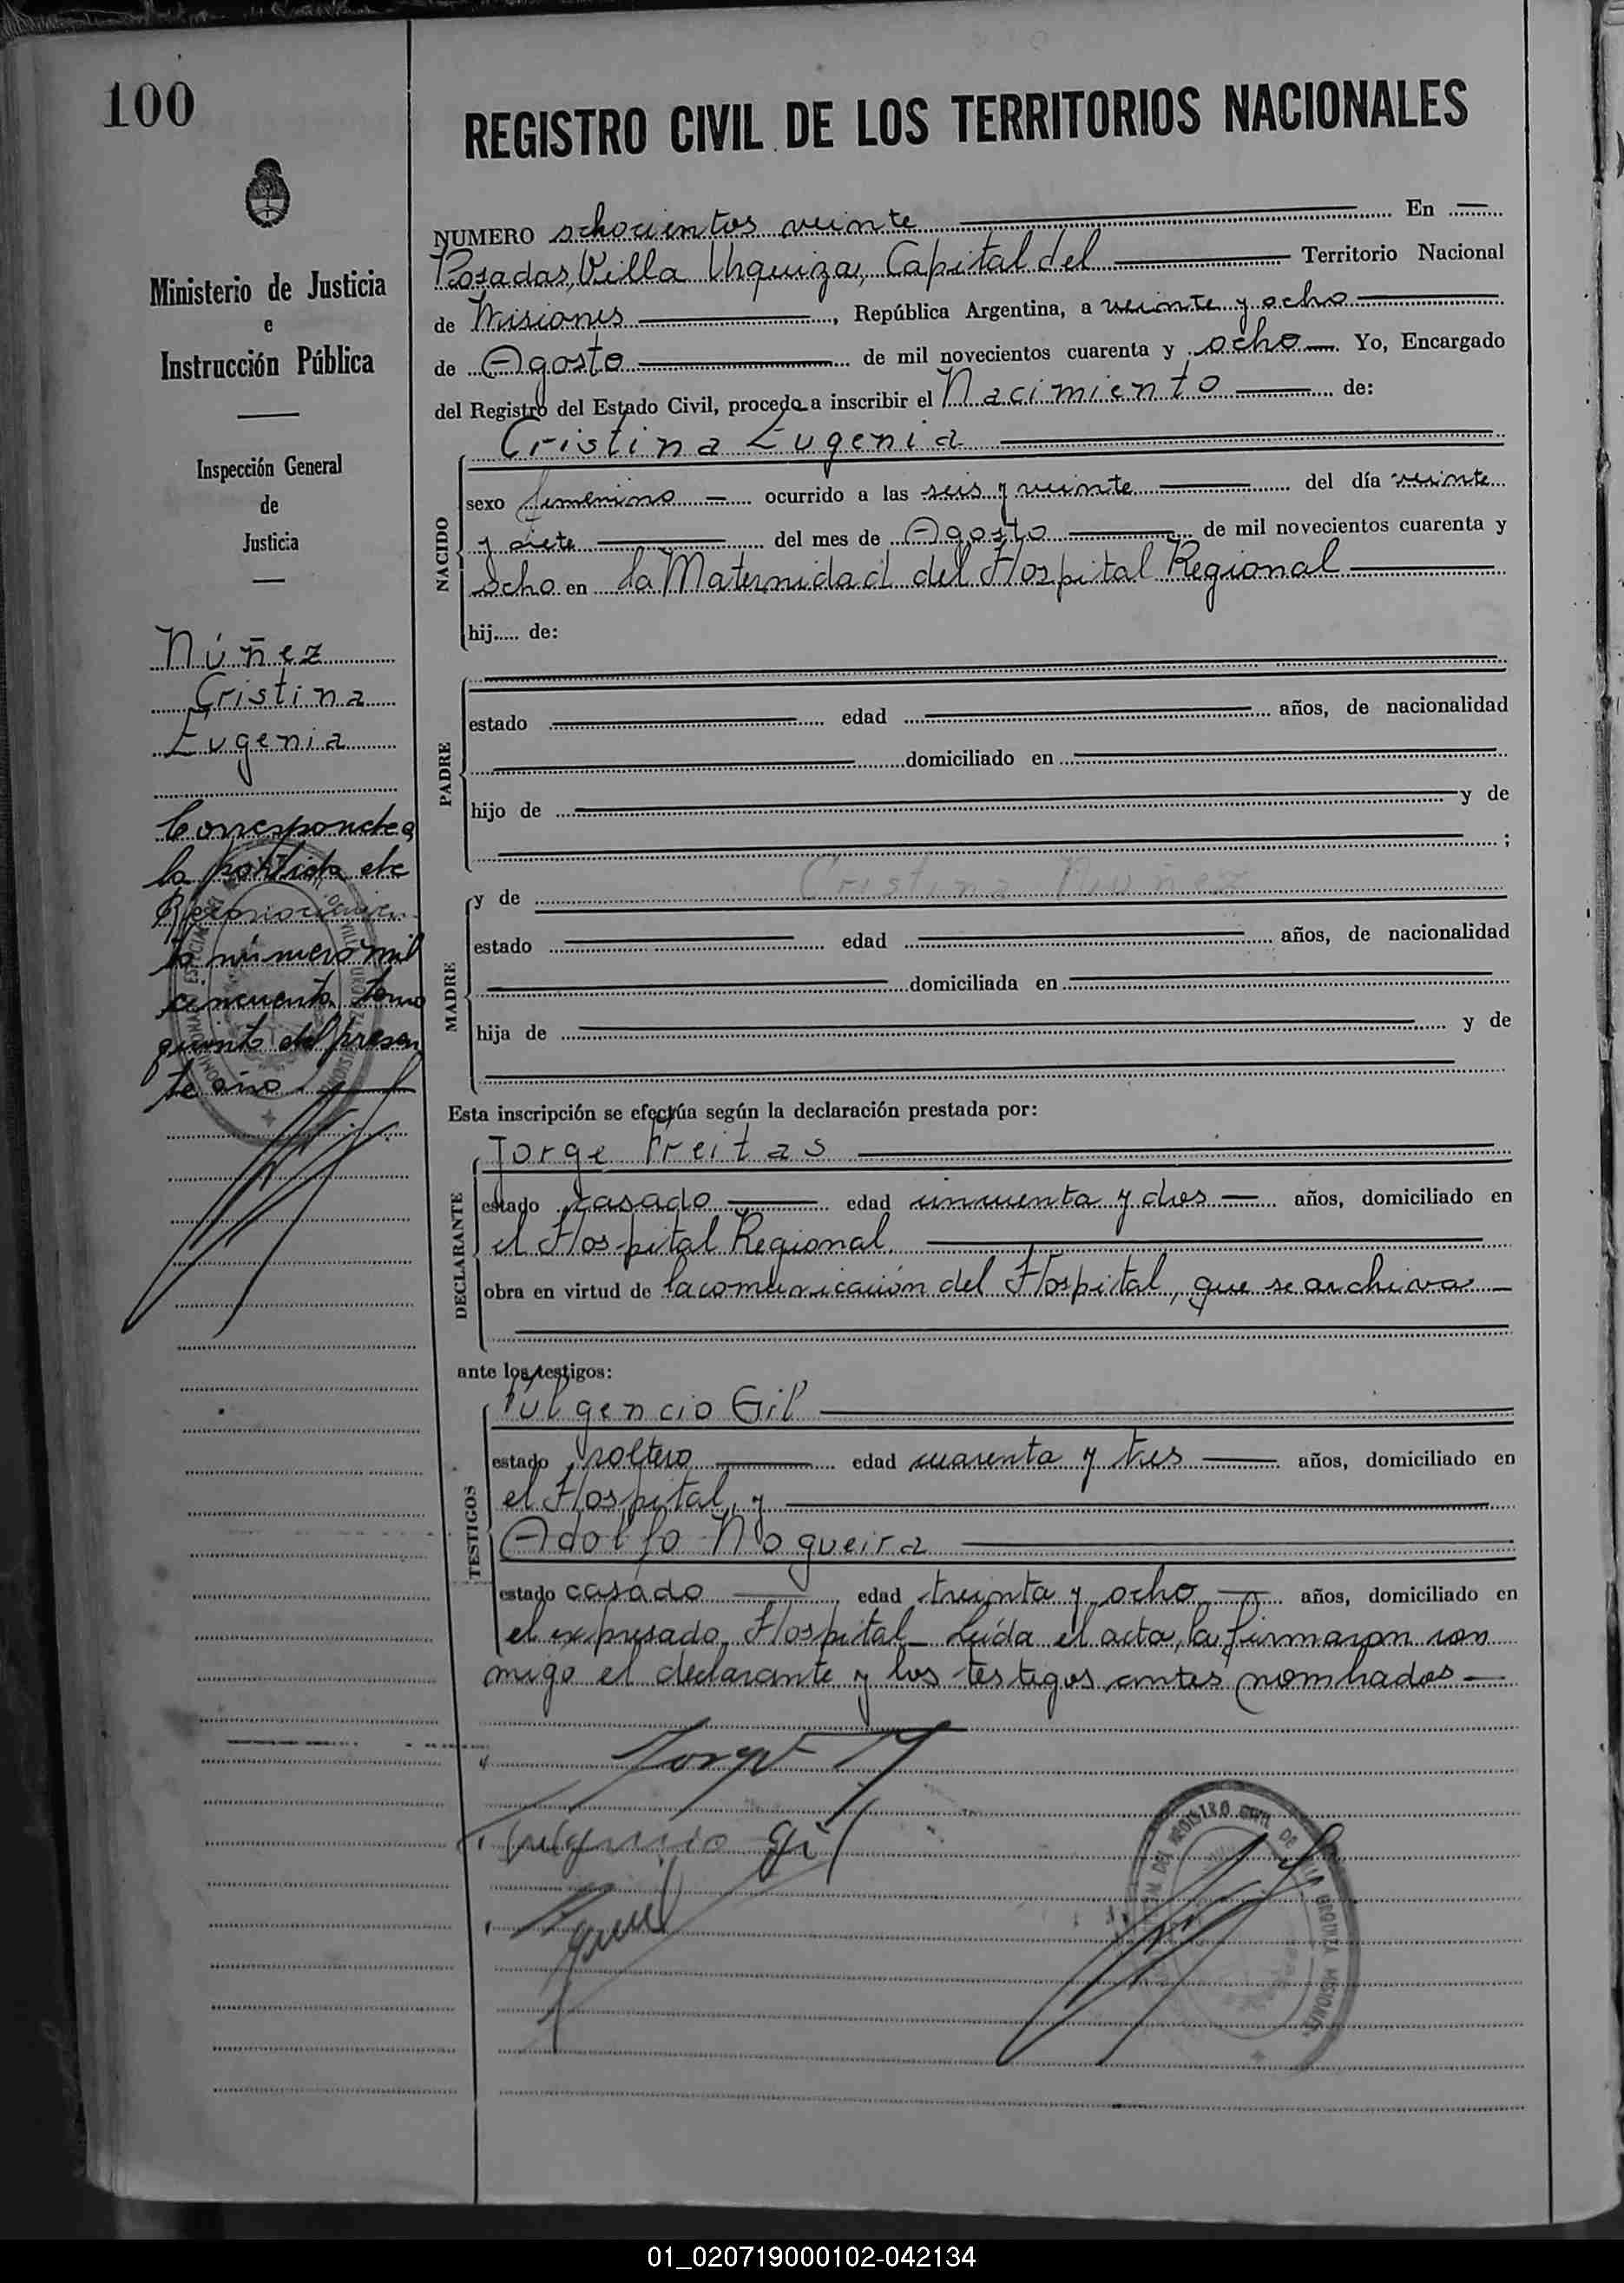 100
REGISTRO CIVIL DE LOS TERRITORIOS NACIONALES
Ministerio de Justicia
e
Instrucción Pública
Inspección General
de
Justicia
Núñez
Cristina
Eugenia
Corresponde a
la partida de
Reconocimien
to número mil
cincuenta tomo
quinto del presen
te año
NUMERO ochocientos veinte En
Posadas, Villa Urquiza, Capital del Territorio Nacional
de Misiones, República Argentina, a veinte y ocho
de Agosto de mil novecientos cuarenta y ocho Yo, Encargado
del Registro del Estado Civil, procedo a inscribir el Nacimiento de:
NACIDO
Cristina Eugenia
sexo femenino ocurrido a las seis y veinte del día veinte
y siete del mes de Agosto de mil novecientos cuarenta y
ocho en la Maternidad del Hospital Regional
hij..... de:
PADRE
estado edad años, de nacionalidad
domiciliado en
hijo de y de
;
MADRE
y de Cristina Nuñez
estado edad años, de nacionalidad
domiciliada en
hija de y de
Esta inscripción se efectúa según la declaración prestada por:
DECLARANTE
Jorge Freitas
estado casado edad cincuenta y dos años, domiciliado en
el Hospital Regional
obra en virtud de la comunicación del Hospital, que se archiva
ante los testigos:
TESTIGOS
Fulgencio Gil
estado soltero edad cuarenta y tres años, domiciliado en
el Hospital, y
Adolfo Nogueira
estado casado edad treinta y ocho años, domiciliado en
el expresado Hospital Leída el acta, la firmaron con
migo el declarante y los testigos antes nombrados
Fulgencio Gil
REGISTRO CIVIL DE VILLA URQUIZA MISIONES
01_020719000102-042134